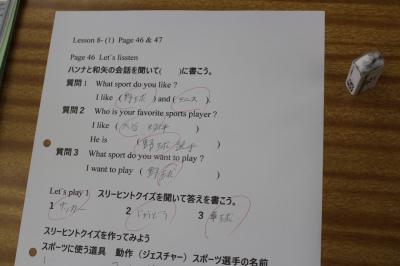 Lesson 8- (1) Page 46 & 47
Page 46 Let's lissten
ハンナと和矢の会話を聞いて( )に書こう。
質問1 What sport do you like ?
I like (野球) and (テニス).
質問2 Who is your favorite sports player ?
I like (大谷 )
He is (野球選手)
質問3 What sport do you want to play ?
I want to play (野球)
Let's play 1 スリーヒントクイズを聞いて答えを書こう。
1 サッカー 2 3 卓球
スリーヒントクイズを作ってみよう
スポーツに使う道具 動作(ジェスチャー) スポーツ選手の名前